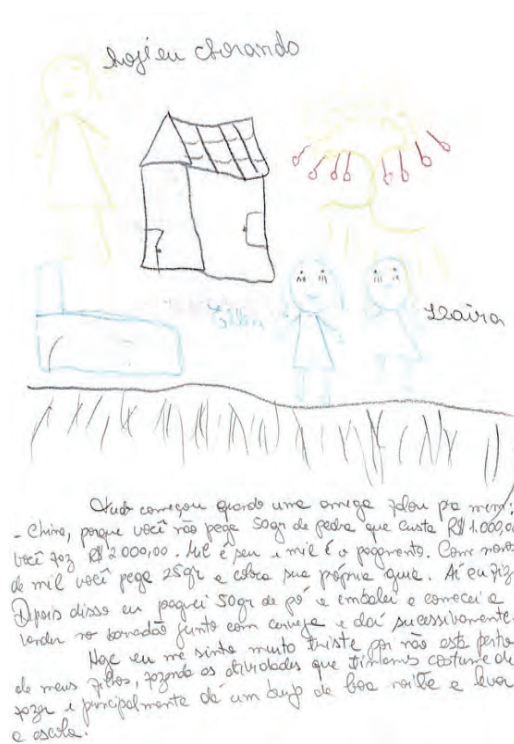 hoje eu chorando
Maira
Tudo começou quando uma amiga falou pra mim:
- China, porque você não pega 50gr de pedra que custa R$ 1.000,00
você faz R$ 2.000,00. Mil é seu e mil é o pagamento. Com menos
de mil você pega 25gr e cobra sua própria guia. Aí eu fiz.
Depois disso eu peguei 50gr de pó e embalei e comecei a
vender no sonadão junto com cerveja e daí sucessivamente.
Hoje eu me sinto muito triste por não está perto
de meus filhos, fazendo as atividades que tínhamos costume de
fazer e principalmente dá um beijo de boa noite e levar
a escola.